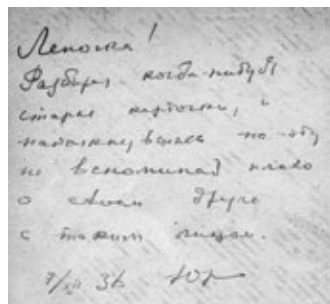 Леночка!
Разбирая когда-нибудь
старые карточки, и
наткнувшись на эту
не вспоминай плохо
о своем друге
с таким лицом.
7/XII 36 Юр